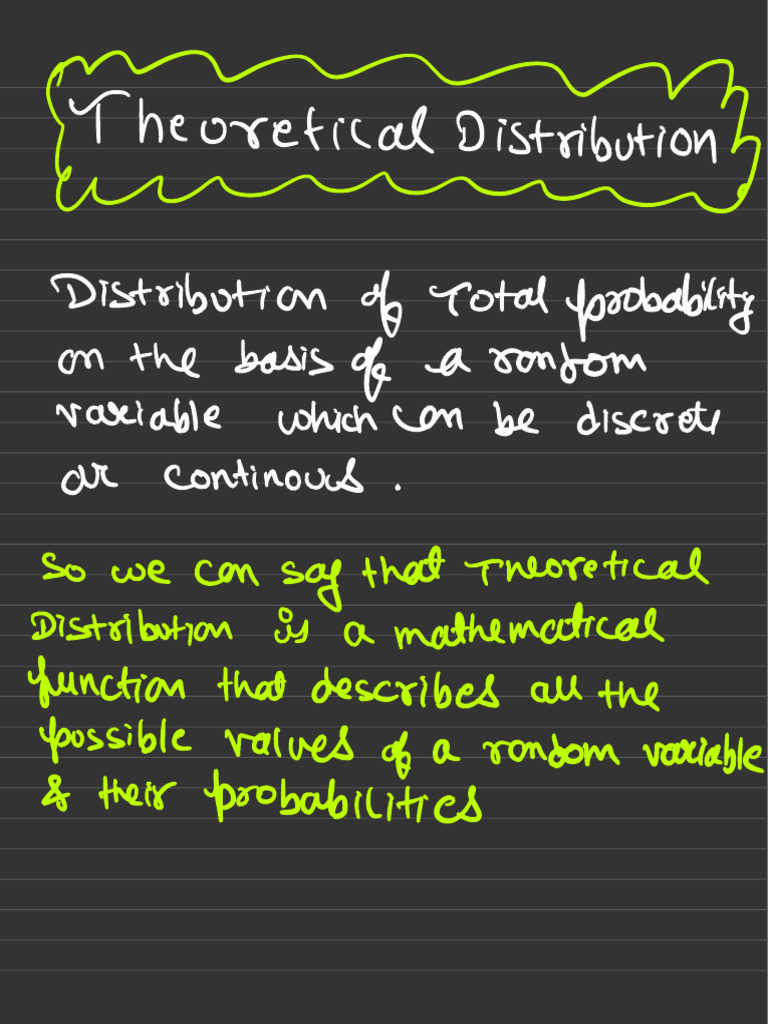 Theoretical Distribution
Distribution of Total probability
on the basis of a random
variable which can be discrete
or continous.
So we can say that Theoretical
Distribution is a mathematical
function that describes all the
possible values of a random variable
& their probabilities